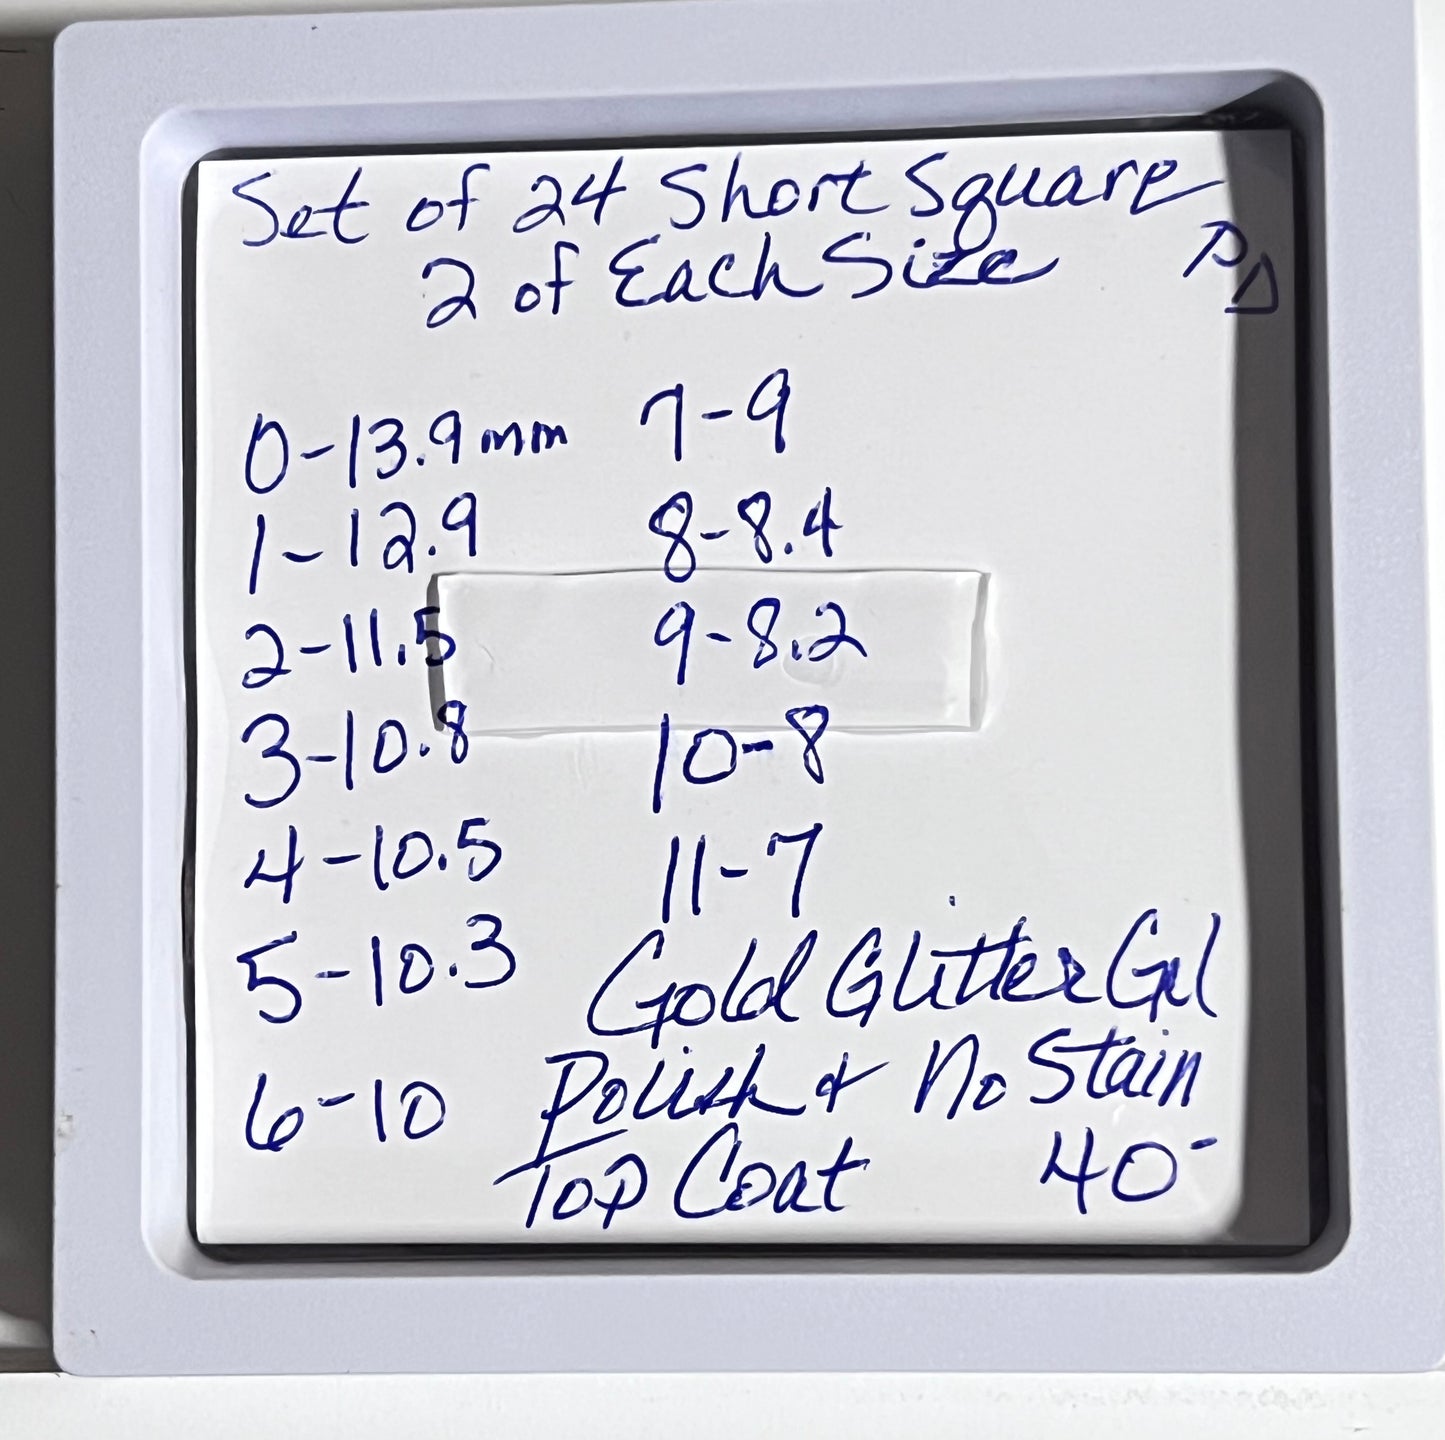 Set of 24 Short Square
2 of Each Size
0-13.9mm
1-12.9
2-11.5
3-10.8
4-10.5
5-10.3
6-10
7-9
8-8.4
9-8.2
10-8
11-7
Gold Glitter Gel
Polish & No Stain
Top Coat 40-